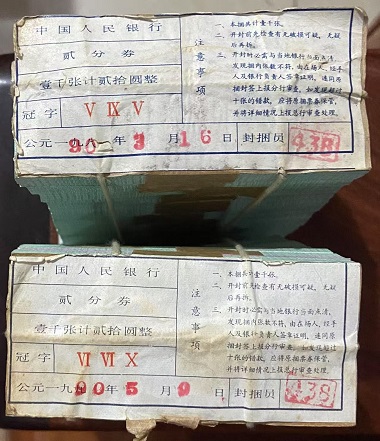 中国人民银行
贰分券
壹千张计贰拾圆整
冠字 V IX V
公元一九八一年 90 3月16日封捆员 438
注意事项
一、本捆共计壹千张。
二、开封前先检查有无破损可疑，无疑
后再拆。
三、开封时必需与当地银行当面点清，
发现捆内张数不符，由在场人、经手
人及银行负责人签章证明，连同原
捆封签上报分行审查，如发现超过
十张的错款，应将原捆票券保管，
并将详细情况上报总行审查处理。
中国人民银行
贰分券
壹千张计贰拾圆整
冠字 VI VI X
公元一九90年5月9日封捆员 438
注意事项
一、本捆共计壹千张。
二、开封前先检查有无破损可疑，无疑
后再拆。
三、开封时必需与当地银行当面点清，
发现捆内张数不符，由在场人、经手
人及银行负责人签章证明，连同原
捆封签上报分行审查，如发现超过
十张的错款，应将原捆票券保管，
并将详细情况上报总行审查处理。